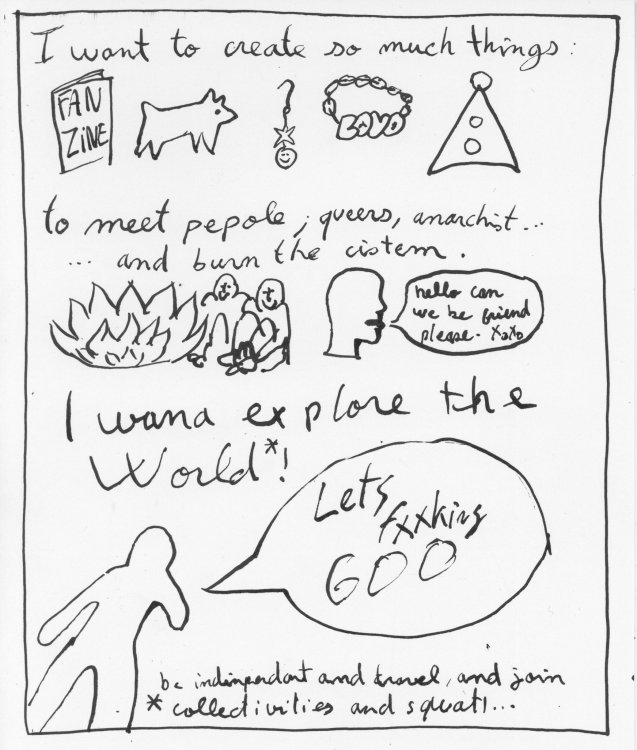 I want to create so much things:
FAN
ZiNE
to meet pepole, queers, anarchist...
... and burn the cistem.
hello can
we be friend
please. xoxo
I wana explore the
World*!
Lets
fxxking
GOO
be indinpendant and travel, and join
* collectivities and squat!...